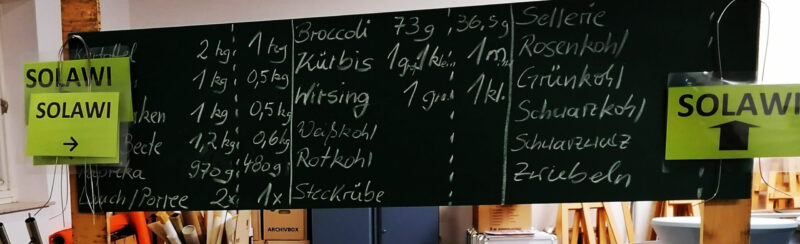 SOLAWI
SOLAWI
→
2 kg 1 kg
1 kg 0,5 kg
1 kg 0,5 kg
1,2 kg 0,6 kg
970g 480g
Lauch/Porree 2x 1x
Broccoli 73g 36,5g
Kürbis
Wirsing 1 gr. 1 kl.
Weißkohl
Rotkohl
Steckrübe
Sellerie
Rosenkohl
Grünkohl
Schwarzkohl
Schwarzwurz
Zwiebeln
SOLAWI
ARCHIVBOX